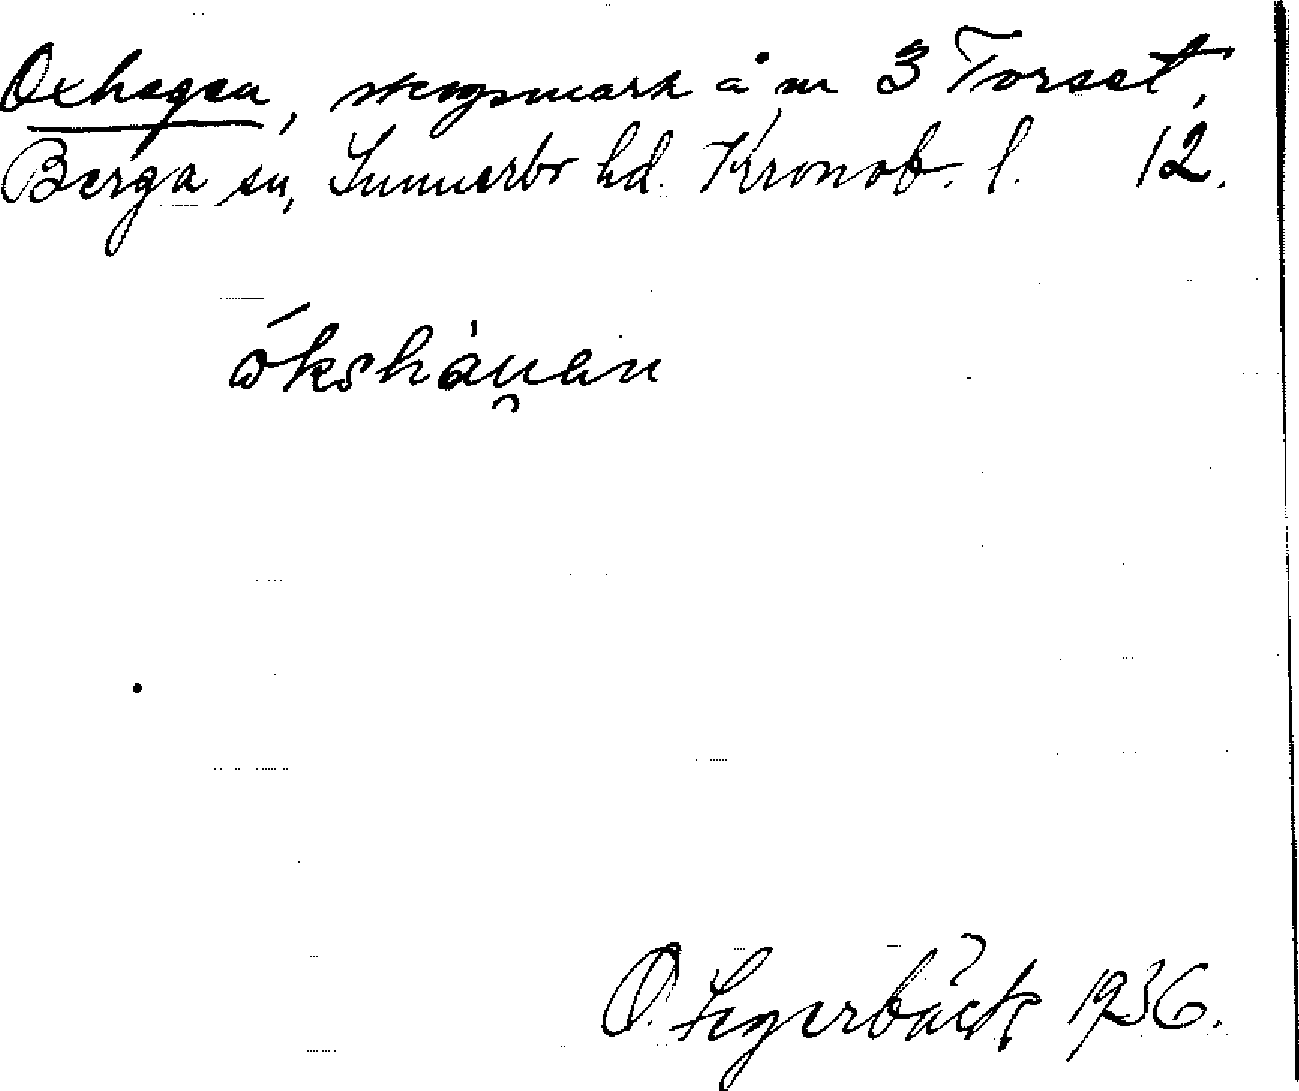 Oxhagen, skogsmark å nr 3 Torset,
Berga sn, Sunnerbo hd. Kronob. l. 12.
ókshàu̯en
O. Segerbäck 1936.